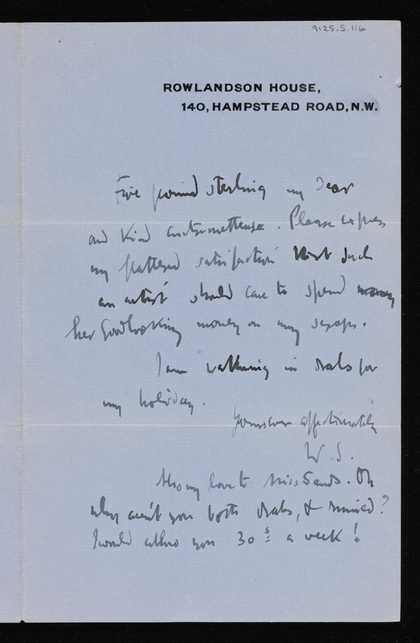 9125.5.116
ROWLANDSON HOUSE,
140, HAMPSTEAD ROAD, N.W.
Five pound sterling my dear
and kind customer. Please express
my flattered satisfaction that such
an artist should care to spend money
her goodlooking money on my scraps.
I am wallowing in drabs for
my holiday.
Yours ever affectionately
W. S.
Also my love to Miss Sands. Oh
why aren't you both drabs, & ruined?
I would allow you 30s a week!